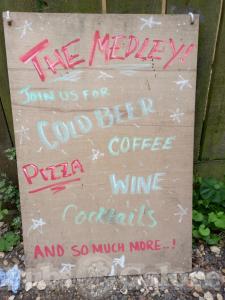 THE MEDLEY!
JOIN US FOR
COLD BEER
COFFEE
PIZZA
WINE
Cocktails
AND SO MUCH MORE..!